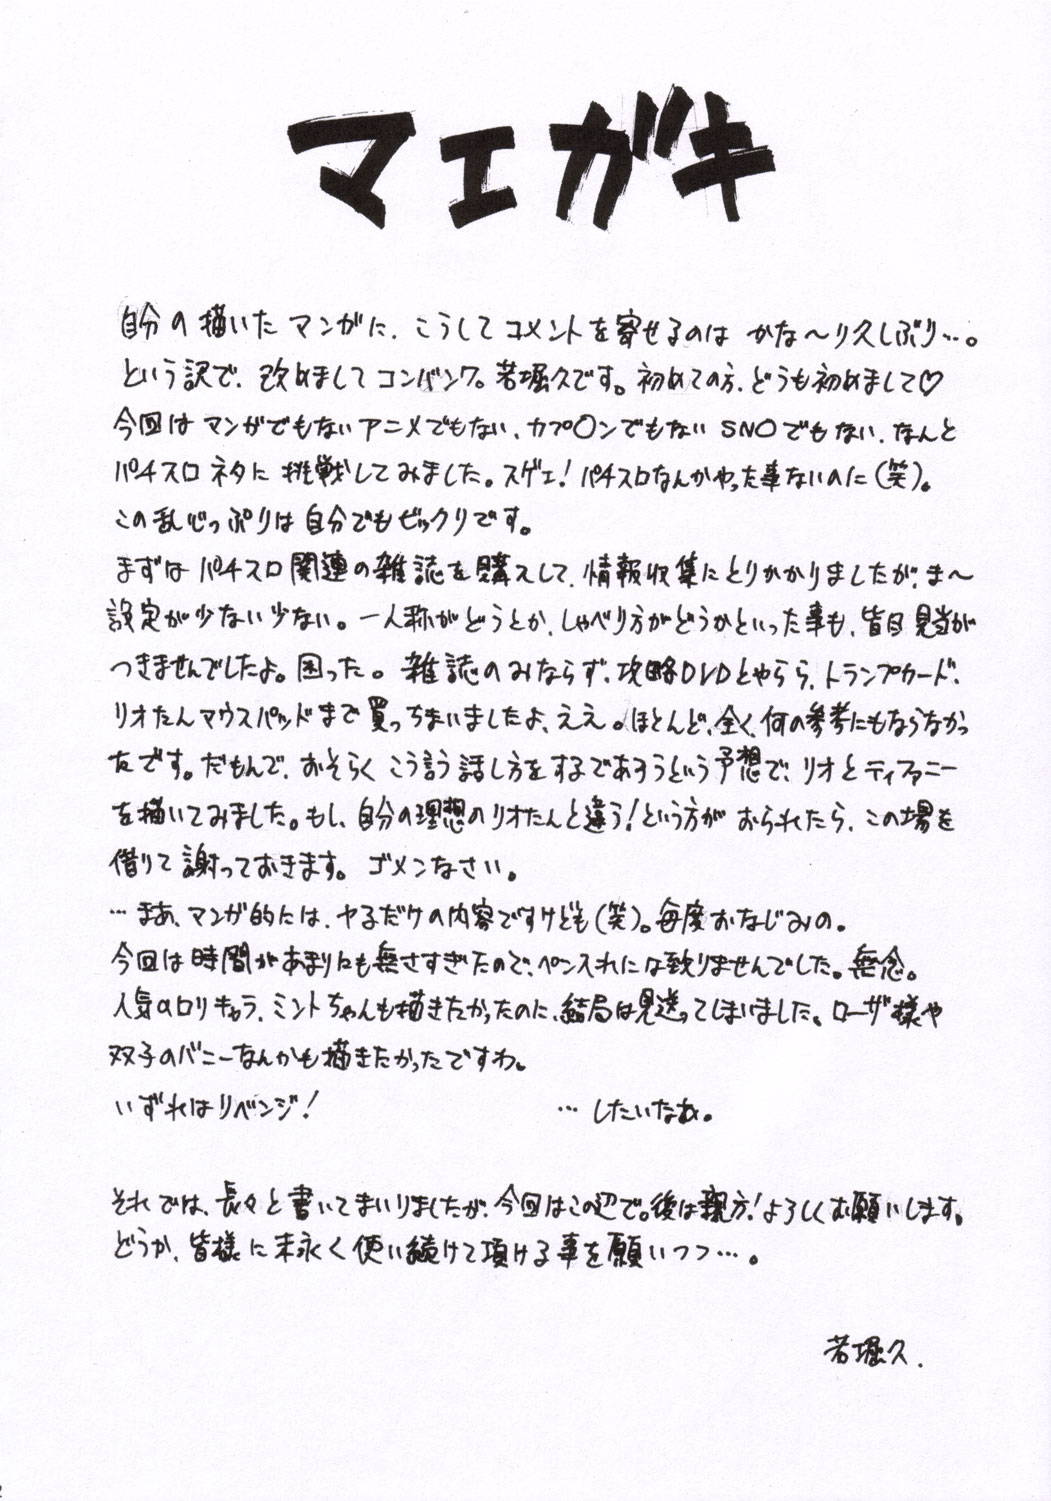 マエガキ
自分の描いたマンガに、こうしてコメントを寄せるのは かな〜り久しぶり…。
という訳で、改めましてコンバンワ。若堀久です。初めての方、どうも初めまして♡
今回は マンガでもないアニメでもない、カプ〇ンでもない SN〇でもない、なんと
パチスロネタに 挑戦してみました。スゲェ！パチスロなんかやった事ないのに(笑)。
この乱心っぷりは自分でもビックリです。
まずは パチスロ関連の雑誌を購入して、情報収集にとりかかりましたが、ま〜
設定が少ない少ない。一人称がどうとか、しゃべり方がどうかといった事も、皆目見当が
つきませんでしたよ。困った。雑誌のみならず、攻略DVDとやらら、トランプカード、
リオたんマウスパッドまで買っちまいましたよ、ええ。ほとんど、全く、何の参考にもならなかっ
たです。だもんで、おそらく こう言う話し方をするであろうという予想で、リオとティファニー
を描いてみました。もし、自分の理想のリオたんと違う！という方が おられたら、この場を
借りて謝っておきます。ゴメンなさい。
…まあ、マンガ的には、ヤるだけの内容ですけども(笑)。毎度おなじみの。
今回は時間があまりにも無さすぎたので、ペン入れには致りませんでした。無念。
人気のロリキャラ、ミントちゃんも描きたかったのに、結局は見送ってしまいました。ローザ様や
双子のバニーなんかも描きたかったですわ。
いずれはリベンジ！ …したいなぁ。
それでは、長々と書いてまいりましたが、今回はこの辺で。後は親方！よろしくお願いします。
どうか、皆様に末永く使い続けて頂ける事を願いつつ…。
若堀久.
2